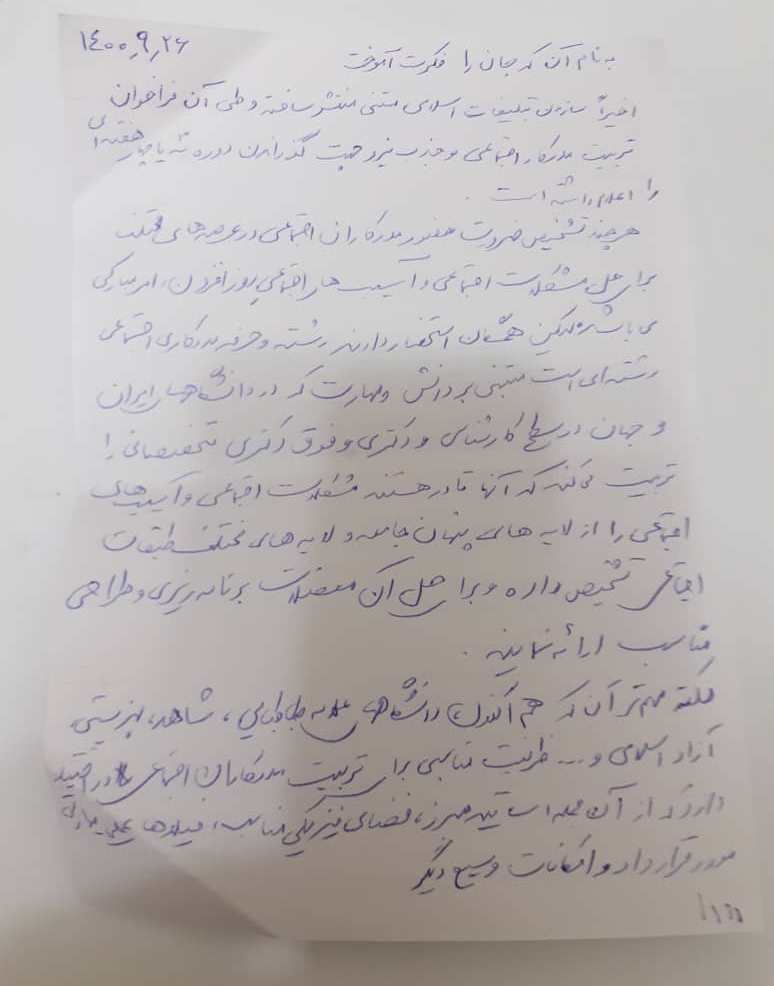 ۱۴۰۰٫۹٫۲۶
به نام آن که جان را فکرت آموخت
اخیراً سازمان تبلیغات اسلامی متنی منتشر ساخته و طی آن فراخوان
تربیت مددکار اجتماعی و جذب نیرو جهت گذراندن دوره سه یا چهار هفته ای
را اعلام داشته است.
هرچند تشخیص ضرورت حضور مددکاران اجتماعی در عرصه های مختلف
برای حل مشکلات اجتماعی و آسیب های اجتماعی روز افزون، امر مبارکی
می باشد ولیکن همگان استحضار دارند رشته و حرفه مددکاری اجتماعی
رشته ای است مبتنی بر دانش و مهارت که در دانشگاههای ایران
و جهان در سطح کارشناسی و دکتری و فوق دکتری متخصصانی را
تربیت می کند که آنها قادر هستند مشکلات اجتماعی و آسیب های
اجتماعی را از لایه های پنهان جامعه و لایه های مختلف طبقات
اجتماعی تشخیص داده و برای حل آن معضلات برنامه ریزی و طراحی
مناسب ارائه نمایند.
نکته مهم تر آن که هم اکنون دانشگاههای علامه طباطبایی، شاهد، بهزیستی،
آزاد اسلامی و ... ظرفیت مناسبی برای تربیت مددکاران اجتماعی در اختیار
دارند که از آن جمله اساتید مبرز، فضای فیزیکی مناسب، فیلدهای عملی
مورد قرارداد و امکانات وسیع دیگر